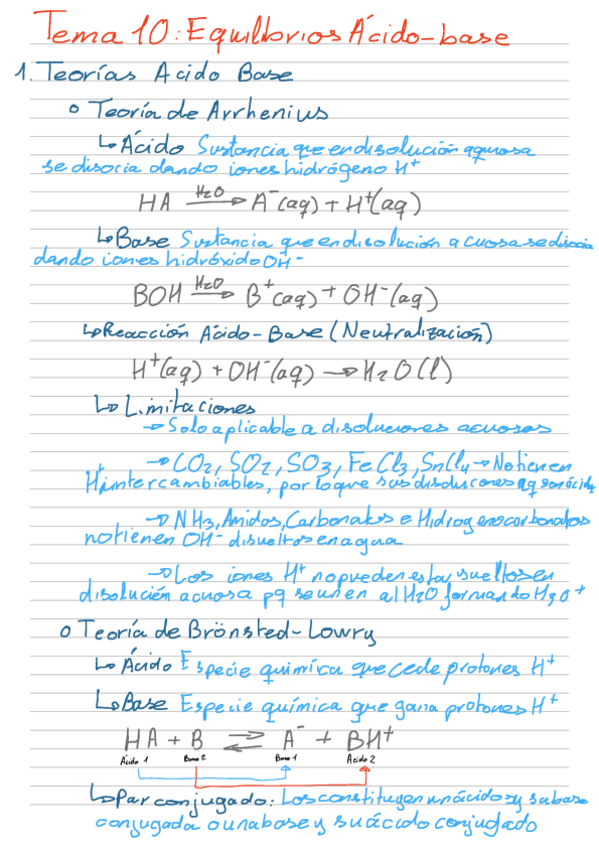 Tema 10: Equilibrios Ácido-base
1. Teorías Acido Base
o Teoría de Arrhenius
↳ Ácido Sustancia que en disolución aquosa
se disocia dando iones hidrógeno H⁺
HA —H₂O→ A⁻(aq) + H⁺(aq)
↳ Base Sustancia que en disolución acuosa se disocia
dando iones hidróxido OH⁻
BOH —H₂O→ B⁺(aq) + OH⁻(aq)
↳ Reacción Ácido-Base (Neutralización)
H⁺(aq) + OH⁻(aq) → H₂O(l)
↳ Limitaciones
→ Solo aplicable a disoluciones acuosas
→ CO₂, SO₂, SO₃, FeCl₃, SnCl₄ → No tienen
H⁺ intercambiables, por lo que sus disoluciones aq son ácidas
→ NH₃, Amidas, Carbonatos e Hidrogenocarbonatos
no tienen OH⁻ disueltos en agua
→ Los iones H⁺ no pueden estar sueltos en
disolución acuosa pq se unen al H₂O formando H₃O⁺
o Teoría de Brönsted-Lowry
↳ Ácido Especie química que cede protones H⁺
↳ Base Especie química que gana protones H⁺
HA + B ⇌ A⁻ + BH⁺
Ácido 1 Base 2 Base 1 Ácido 2
↳ Par conjugado: Los constituyen un ácido y su base
conjugada o una base y su ácido conjugado